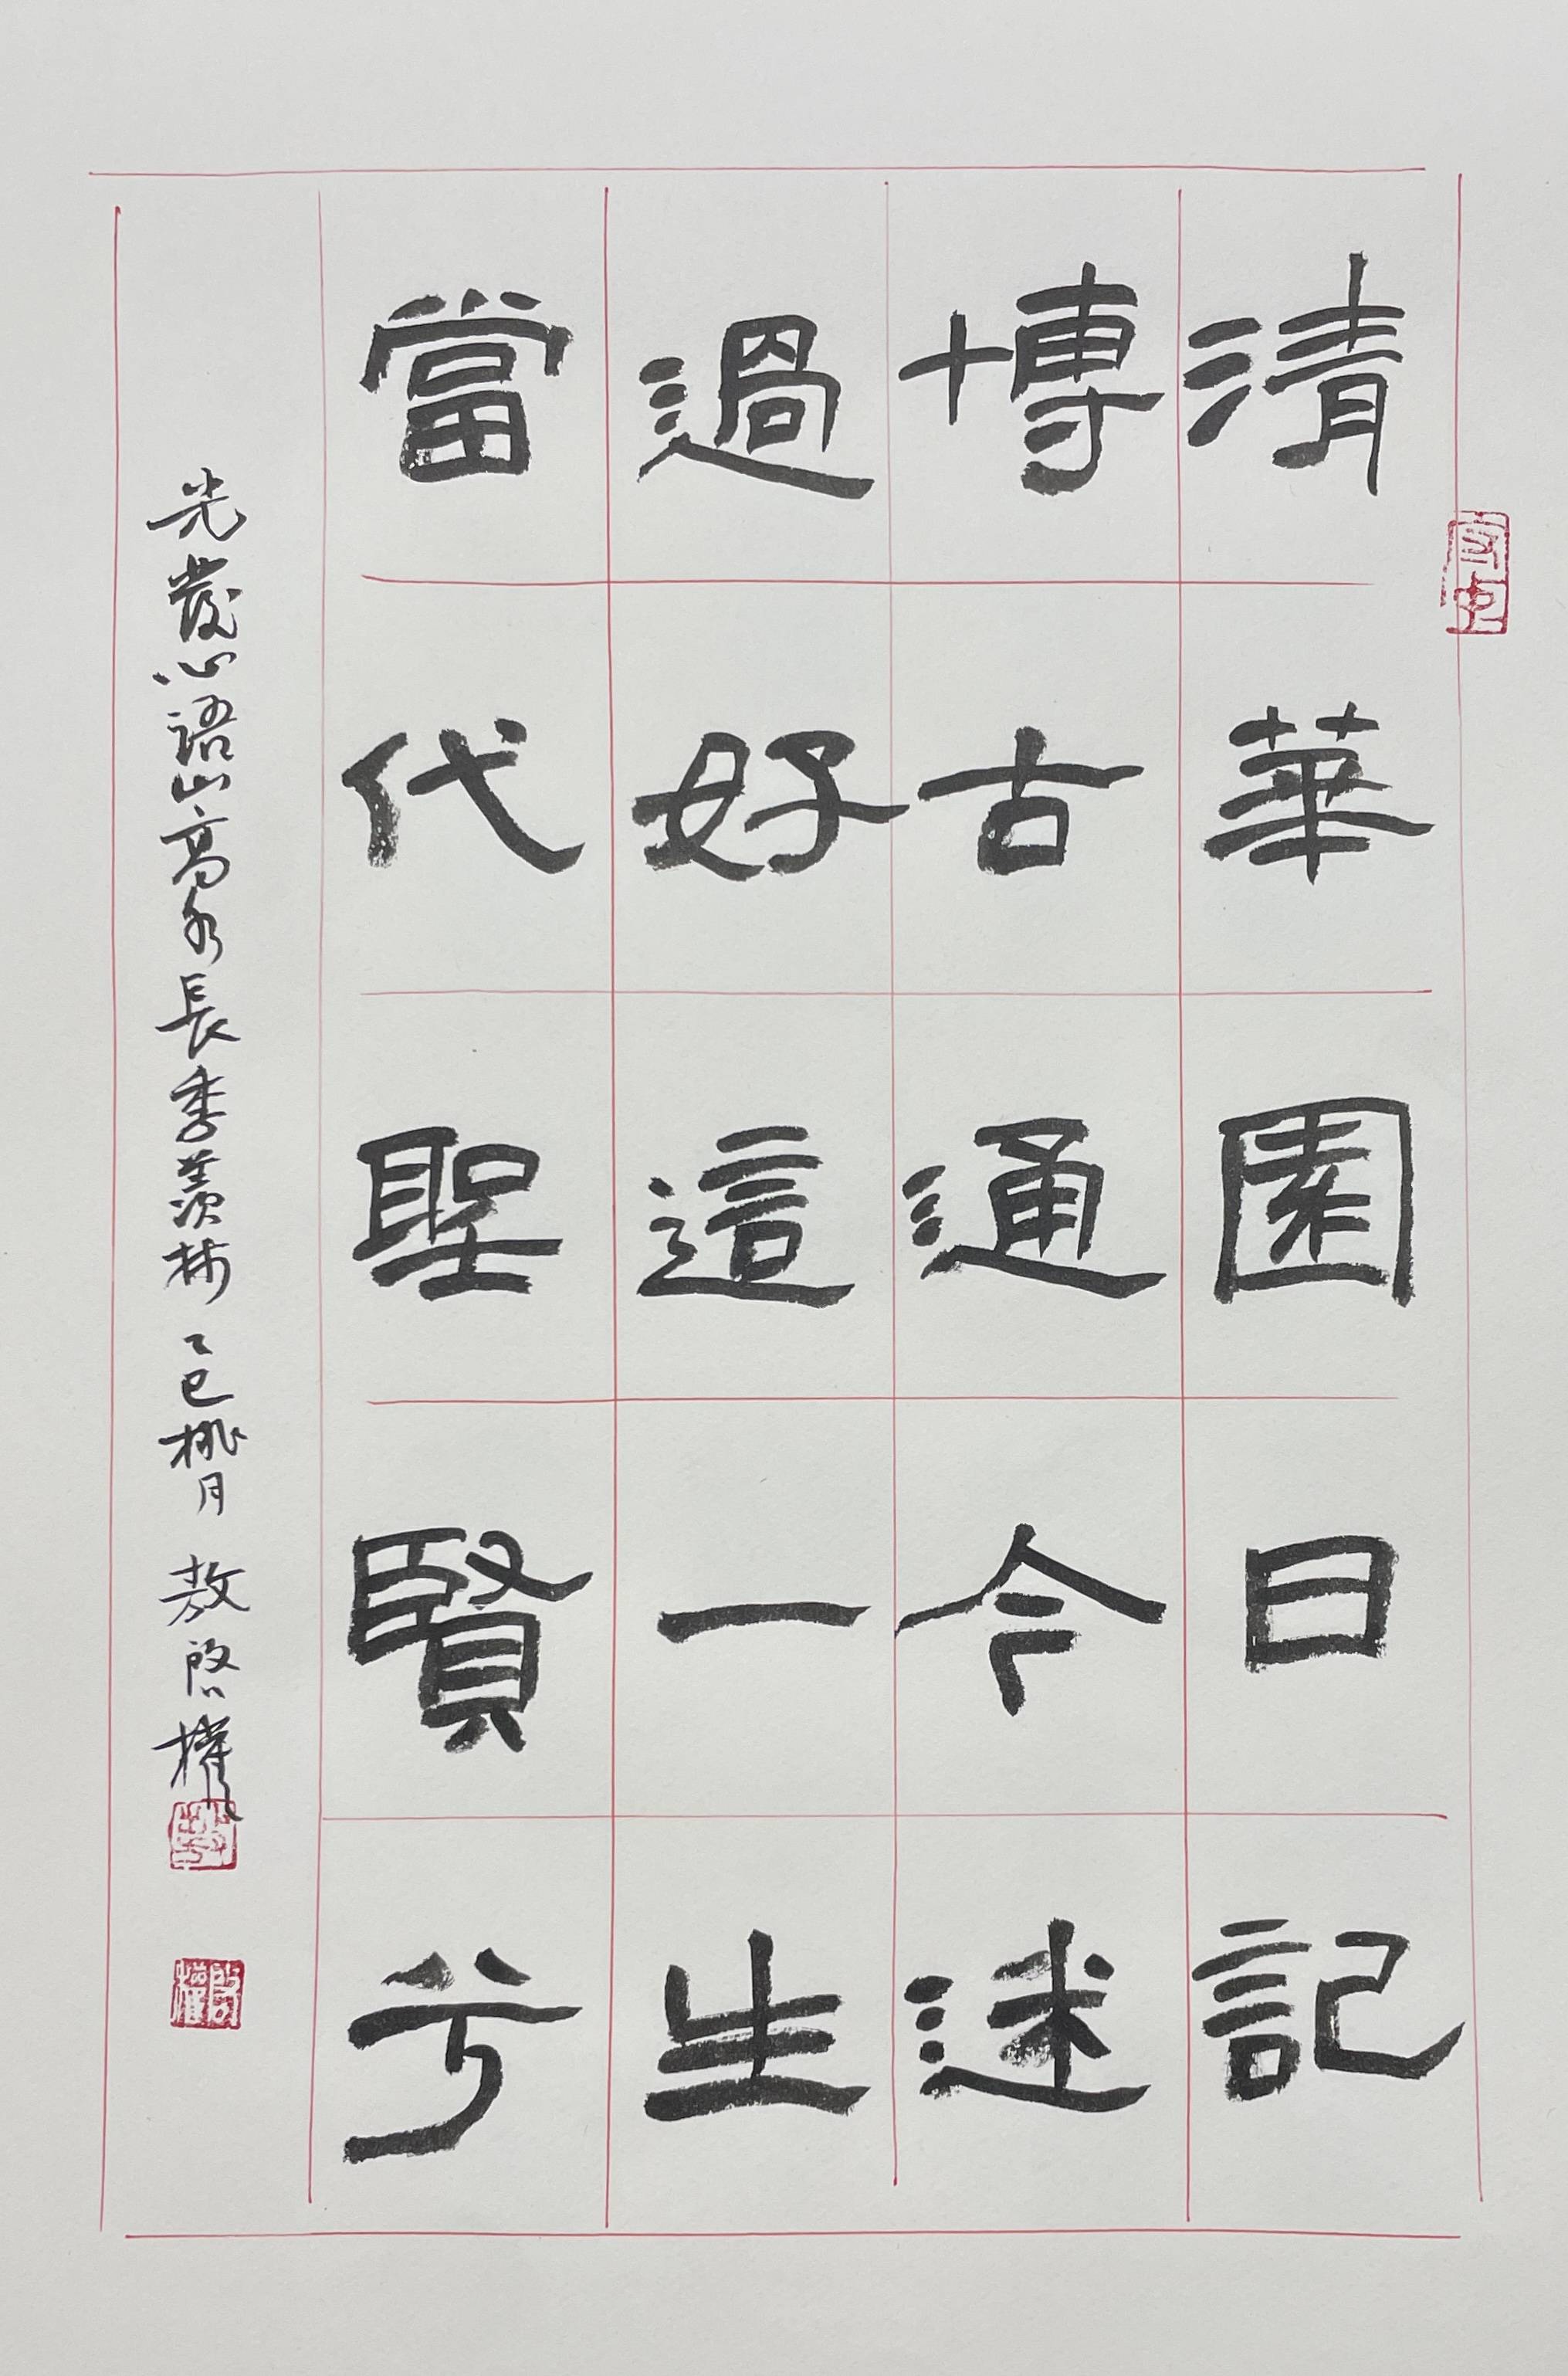 清華園日記
博古通今迷
過好這一生
當代聖賢兮
光發心語山高水長季羨林 乙巳桃月 敖啓權
啓權